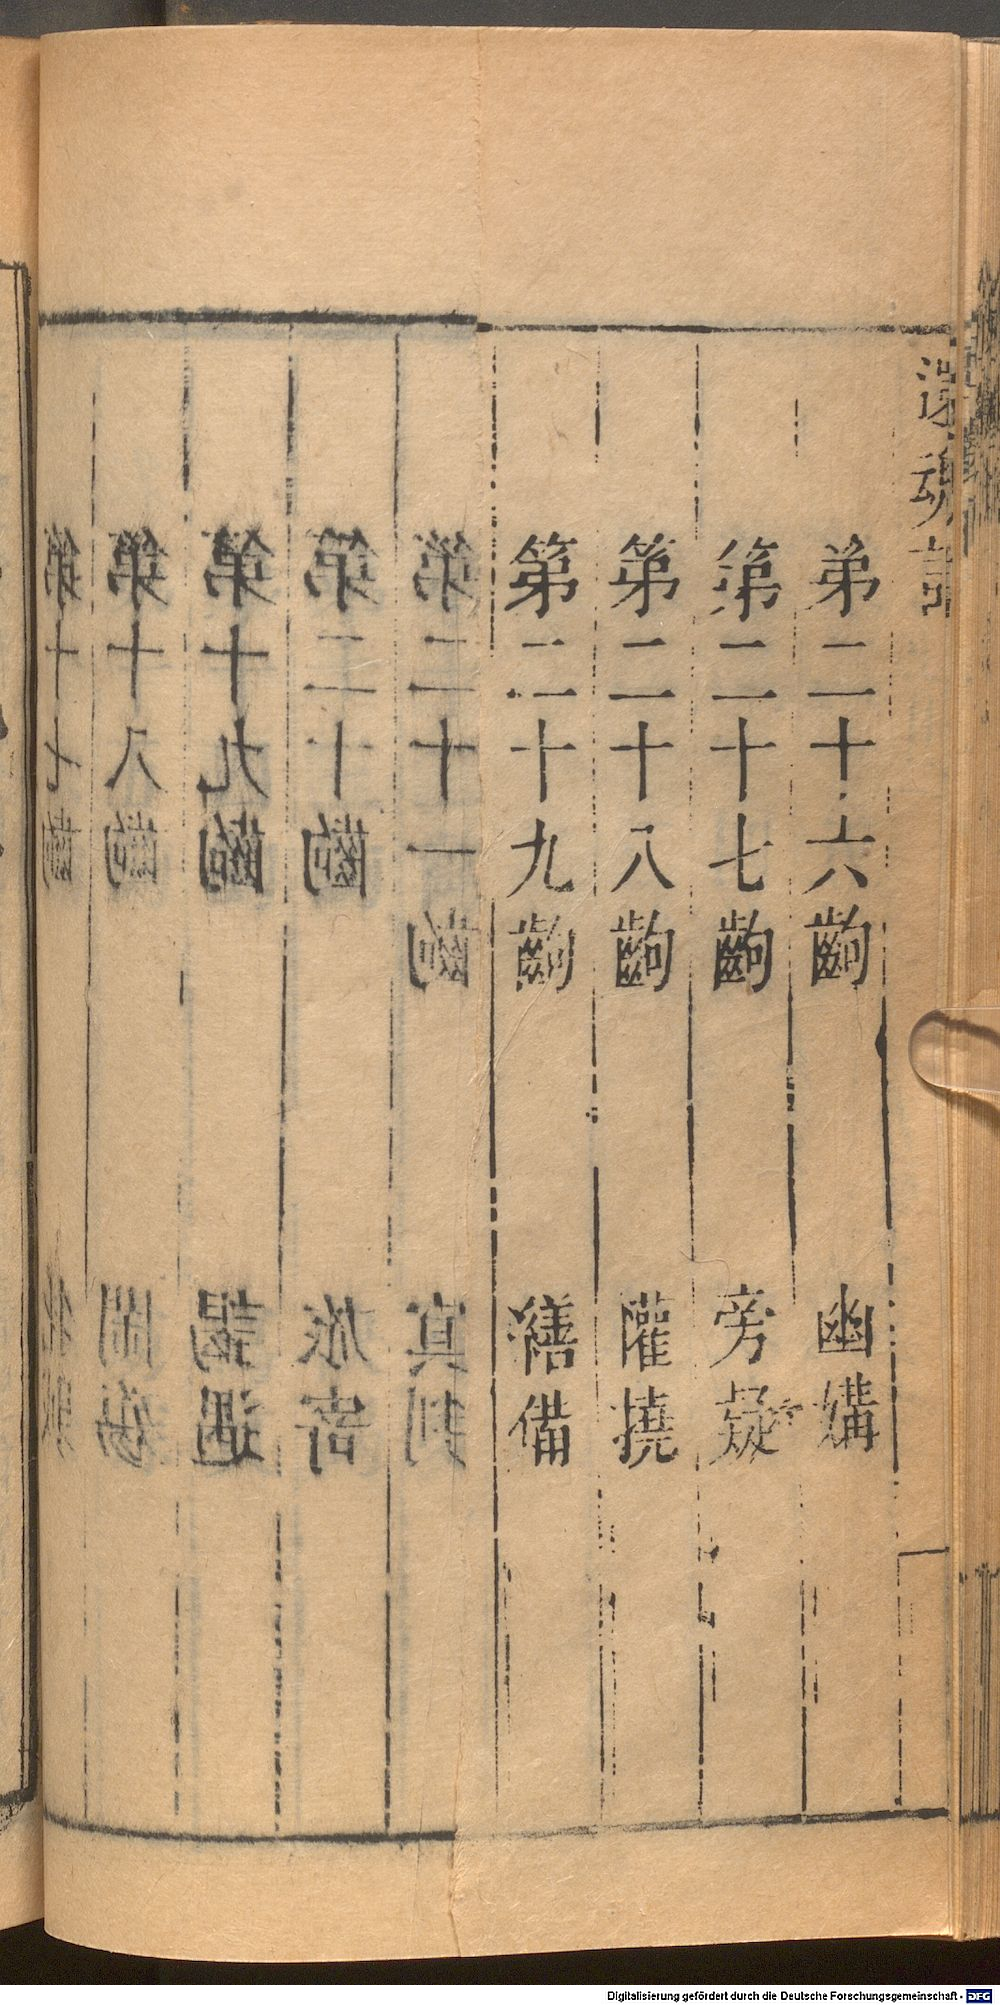 還魂記
弟二十六齣 幽媾
第二十七齣 旁疑
第二十八齣 懽撓
第二十九齣 繕備
第二十一齣 冥判
第二十齣 旅寄
第十九齣 謁遇
第十八齣 鬧殤
第十七齣 牝賊
Digitalisierung gefördert durch die Deutsche Forschungsgemeinschaft - DFG